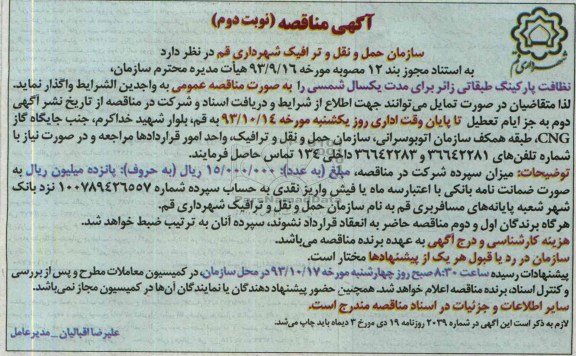 آگهی مناقصه (نوبت دوم)
سازمان حمل و نقل و ترافیک شهرداری قم در نظر دارد
به استناد مجوز بند ۱۲ مصوبه مورخه ۹۳/۹/۱۶ هیأت مدیره محترم سازمان،
نظافت پارکینگ طبقاتی زائر برای مدت یکسال شمسی را به صورت مناقصه عمومی به واجدین الشرایط واگذار نماید.
لذا متقاضیان در صورت تمایل می‌توانند جهت اطلاع از شرایط و دریافت اسناد و شرکت در مناقصه از تاریخ نشر آگهی
دوم به جز ایام تعطیل تا پایان وقت اداری روز یکشنبه مورخه ۹۳/۱۰/۱۴ به قم، بلوار شهید خداکرم، جنب جایگاه گاز
CNG، طبقه همکف سازمان اتوبوسرانی، سازمان حمل و نقل و ترافیک، واحد امور قراردادها مراجعه و در صورت نیاز با
شماره تلفن‌های ۳۶۶۴۲۲۸۱ و ۳۶۶۴۲۲۸۳ داخلی ۱۳۴ تماس حاصل فرمایند.
توضیحات: میزان سپرده شرکت در مناقصه، مبلغ (به عدد): ۱۵/۰۰۰/۰۰۰ ریال (به حروف): پانزده میلیون ریال به
صورت ضمانت نامه بانکی با اعتبار سه ماه یا فیش واریز نقدی به حساب سپرده شماره ۱۰۰۷۸۹۴۲۶۵۵۷ نزد بانک
شهر شعبه پایانه‌های مسافربری قم به نام سازمان حمل و نقل و ترافیک شهرداری قم.
هرگاه برندگان اول و دوم مناقصه حاضر به انعقاد قرارداد نشوند، سپرده آنان به ترتیب ضبط خواهد شد.
هزینه کارشناسی و درج آگهی به عهده برنده مناقصه می‌باشد.
سازمان در رد یا قبول هر یک از پیشنهادها مختار است.
پیشنهادات رسیده ساعت ۸:۳۰ صبح روز چهارشنبه مورخه ۹۳/۱۰/۱۷ در محل سازمان، در کمیسیون معاملات مطرح و پس از بررسی
و کنترل اسناد، برنده مناقصه اعلام خواهد شد. همچنین حضور پیشنهاد دهندگان یا نمایندگان آن‌ها در کمیسیون مجاز نمی‌باشد.
سایر اطلاعات و جزئیات در اسناد مناقصه مندرج است.
لازم به ذکر است این آگهی در شماره ۲۰۳۹ روزنامه ۱۹ دی مورخ ۳ دیماه باید چاپ می‌شد.
علیرضا اقبالیان _ مدیرعامل